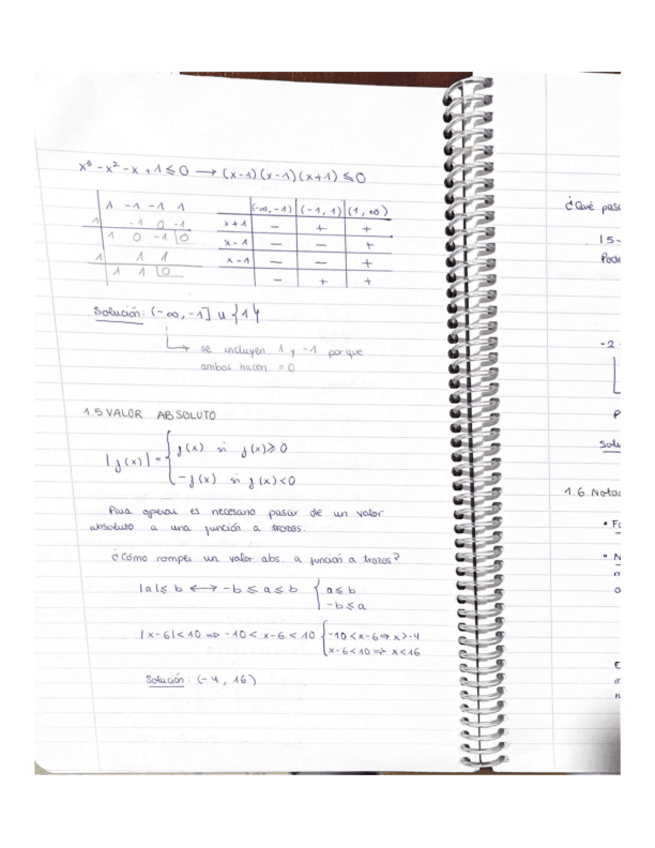 x³ - x² - x + 1 ≤ 0 → (x-1)(x-1)(x+1) ≤ 0
1 -1 -1 1
1 -1 0 -1
1 0 -1 0
1 1 1
1 1 0
(-∞, -1) (-1, 1) (1, ∞)
x+1 - + +
x-1 - - +
x-1 - - +
- + +
Solución: (-∞, -1] u {1}
↳ se incluyen 1 y -1 porque
ambos hacen = 0
1.5 VALOR ABSOLUTO
|f(x)| = { f(x) si f(x) ≥ 0
-f(x) si f(x) < 0
Para operar es necesario pasar de un valor
absoluto a una función a trozos.
¿Cómo romper un valor abs. a función a trozos?
|a| ≤ b ⟷ -b ≤ a ≤ b { a ≤ b
-b ≤ a
|x-6| < 10 ⇒ -10 < x-6 < 10 { -10 < x-6 ⇒ x > -4
x-6 < 10 ⇒ x < 16
Solución: (-4, 16)
¿Qué pas
|5-
Pode
-2
P
Solu
1.6 Nota
• Fo
• N